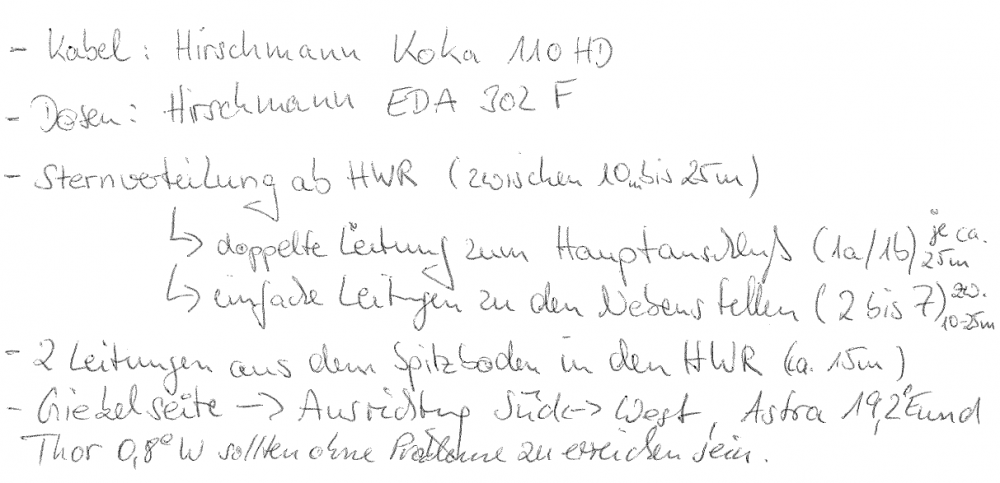 - Kabel: Hirschmann Koka 110 HD
- Dosen: Hirschmann EDA 302 F
- Sternverteilung ab HWR (zwischen 10m bis 25m)
↳ doppelte Leitung zum Hauptanschluß (1a/1b) je ca. 25m
↳ einfache Leitungen zu den Nebenstellen (2 bis 7) zw. 10-25m
- 2 Leitungen aus dem Spitzboden in den HWR (ca. 15m)
- Giebelseite -> Ausrichtung Süd -> West, Astra 19,2°E und
Thor 0,8°W sollten ohne Probleme zu erreichen sein.